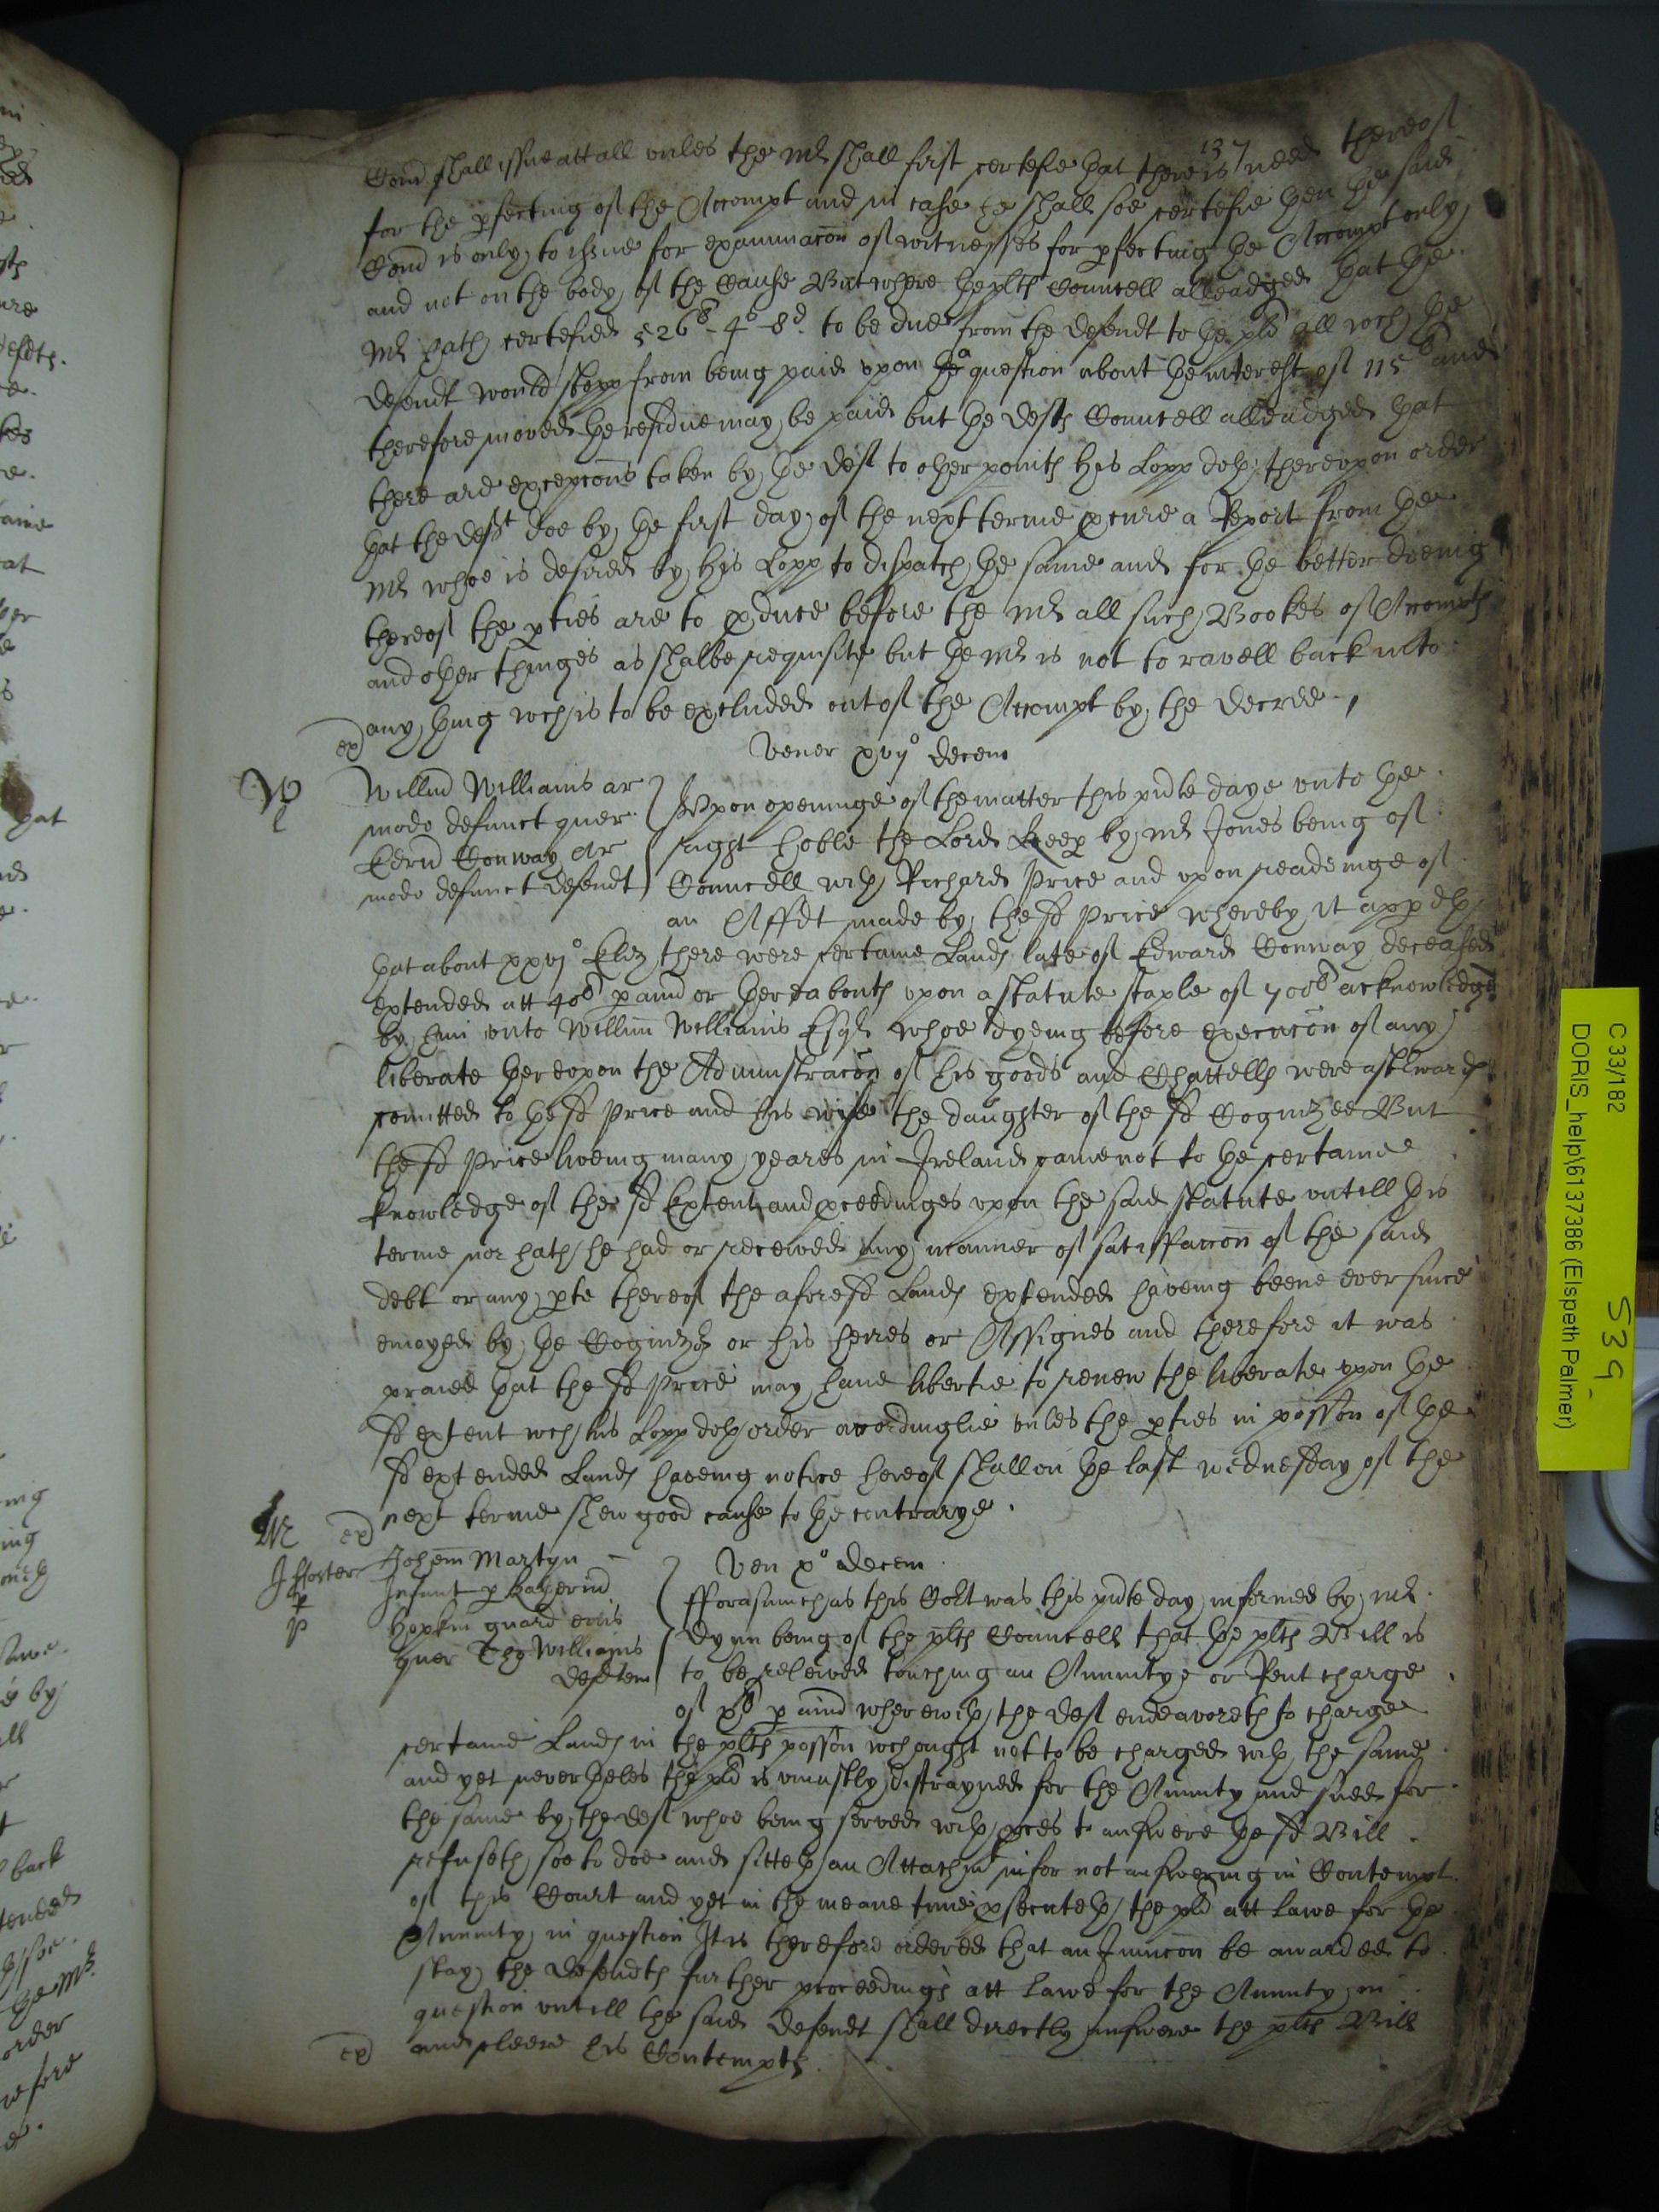 137
Comd shall issue att all vnles the Mr shall first certefie that there is need thereof
for the pfecting of the Accompt and in case he shall soe certefie then the said
Comd is only to issue for examinacon of witnesses for pfecting the Accompt only
and not on the body of the Cause But where the plts Councell alleadged that the
Mr hath certefied 526li-4s-8d to be due from the defendt to the plt all wch the
defendt would stopp from being paid vpon a question about the interest of 115li and
therefore moved the residue may be paid but the defts Councell alleadged that
there are excepcons taken by the deft to other points his Lopp doth thereupon order
that the deft doe by the first day of the next terme pcure a Report from the
Mr whoe is desired by his Lopp to dispatch the same and for the better doeing
thereof the pties are to pduce before the Mr all such Bookes of Accompts
and other thinges as shalbe requisite but the Mr is not to ravell back into
any thing wch is to be excluded out of the Accompt by the decree
ex
Vener xvijo decem
W
Willm Williams ar
modo defunct quer
Edrd Conway Ar
modo defunct defendt
Vpon openinge of the matter this pnte daye vnto the
right hoble the Lord Keep by Mr Jones being of
Councell with Richard Price and vpon readeinge of
an Affdt made by the sd Price whereby it appeth
that about xxvjo Eliz there were certaine Lands late of Edward Conway deceased
extended att 40li p annu or thereabouts vpon a statute staple of 700li acknowledged
by him vnto Willm Williams Esqr whoe dyeing before execucon of any
liberate thereupon the Administracon of his goods and Chattells were aftwards
comitted to the sd Price and his wife the daughter of the sd Cognizee But
the sd Price liveing many yeares in Ireland came not to the certaine
knowledge of the sd Extent and pceedinges vpon the said statute vntill this
terme nor hath he had or received any manner of satisffaccon of the said
debt or any pte thereof the aforesd Lands extended haveing beene ever since
enioyed by the Cognizr or his heires or Assignes and therefore it was
praied that the sd Price may have libertie to renew the liberate vpon the
sd extent wch his Lopp doth order accordinglie vnles the pties in possion of the
sd extended Lands haveing notice hereof shall on the last wednesday of the
next terme shew good cause to the contrarye.
ex
Ven xo decem
Johem Martyn
Infant p Katherin
Hopkin guard eius
quer Tho Williams
defdtem
fforasmuch as this Cort was this pnte day informed by Mr
Dynn being of the plts Councell that the plts Bill is
to be releived touching an Annuitye or Rent charge
of xli p annu wherewith the deft endeavoreth to charge
certaine Lands in the plts possion wch ought not to be charged with the same
and yet neverthelès the plt is vniustly distrayned for the Annuity and sued for
the same by the deft whoe being served with pces to answere the sd Bill
refuseth soe to doe and sitteth an Attachmt in for not answering in Contempt
of this Court and yet in the meane time psecuteth the plt att Lawe for the
Annuity in question It is therefore ordered that an Iniuncon be awarded to
stay the defendts further proceedings att Lawe for the Annuity in
question vntill the said defendt shall directly answere the plts Bill
and cleere his Contempts.
ex
C 33/182 539
DORIS_help\6137386 (Elspeth Palmer)